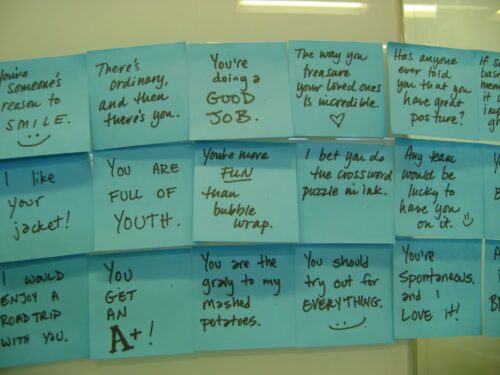 You're
someone's
reason to
SMILE.
There's
ordinary,
and then
there's you.
You're
doing a
GOOD
JOB.
The way you
treasure
your loved ones
is incredible.
Has anyone
ever told
you that you
have great
posture?
If
I like
your
jacket!
YOU ARE
FULL OF
YOUTH.
You're more
FUN
than
bubble
wrap.
I bet you do
the crossword
puzzle in ink.
Any team
would be
lucky to
have you
on it.
I WOULD
ENJOY A
ROADTRIP
WITH YOU.
YOU
GET
AN
A+!
You are the
gravy to my
mashed
potatoes.
You should
try out for
EVERYTHING.
You're
Spontaneous,
and I
LOVE it!